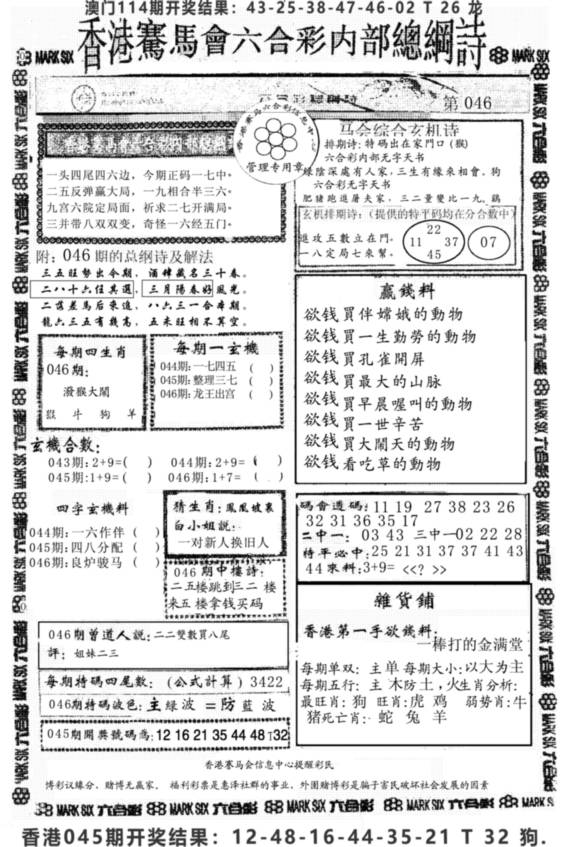 澳门114期开奖结果：43-25-38-47-46-02 T 26 龙
香港騫馬會六合彩内部總綱詩
第 046
香港赛马会六合彩信息中心
管理专用章
一头四尾四六边，今期正码一七中。
二五反弹赢大局，一九相合半三六。
九宫六院定局面，祈求二七开满局。
三并带八双双变，奇怪一六经五门。
附：046期的总纲诗及解法
三五旺势出今期，酒肆藏名三十春。
二八十六任其選，三月陽春好風光。
二蓝差馬后来追，八六三一合本期。
龍六三五有機高，五未旺相不算空。
每期四生肖
046期：
潑猴大鬧
鼠 牛 狗 羊
每期一玄機
044期:一七四五 （ ）
045期:整理三七（ ）
046期:龙王出宫（ ）
玄機合數：
043期:2+9=( ) 044期:2+9=( )
045期:1+9=( ) 046期:1+7=( )
四字玄機料
044期:一六作伴（ ）
045期:四八分配（ ）
046期:良炉骏马（ ）
猜生肖：鳳凰坡裏
白小姐説：
一对新人换旧人
046期中樓詩：
二五楼跳到三二楼
来五楼拿钱买码
046期曾道人説:二二雙數買八尾
評：姐妹二三
每期特碼四尾數：(公式計算) 3422
046期特碼波色：主綠波 =防藍波
045期開奬號碼為:12 16 21 35 44 48 T32
马会综合玄机诗
排期诗: 特码出在家門口 (猴)
六合彩内部无字天书
绿陰深處有人家，三生有緣來相會。狗
六合彩无字天书
肥猪跑進屠夫家，三二量變比一九。鷄
玄机排期诗：(提供的特平码均在分合数中)
進攻五數立在門。
一八定局七來幫。
22
11 37
45
07
赢錢料
欲钱買伴嫦娥的動物
欲钱買一生勤勞的動物
欲钱買孔雀開屏
欲钱買最大的山脉
欲钱買早晨喔叫的動物
欲钱買一世辛苦
欲钱買大鬧天的動物
欲钱看吃草的動物
碼會道碼:11 19 27 38 23 26
32 31 36 35 17
二中一：03 43 三中一02 22 28
特平必中:25 21 31 37 37 41 43
44來料:3+9= <<? >>
雜貨鋪
香港第一手欲錢料：
一棒打的金满堂
每期单双：主单每期大小:以大为主
每期五行：主木防土,火生肖分析:
最旺肖：狗 旺肖:虎 鸡 弱势肖:牛
猪死亡肖：蛇 兔 羊
香港赛马会信息中心提醒彩民
博彩议缘分，赌博无赢家。福利彩票是惠泽社群的事业，外围赌博彩是骗子害民破坏社会发展的因素
香港045期开奖结果：12-48-16-44-35-21 T 32 狗.